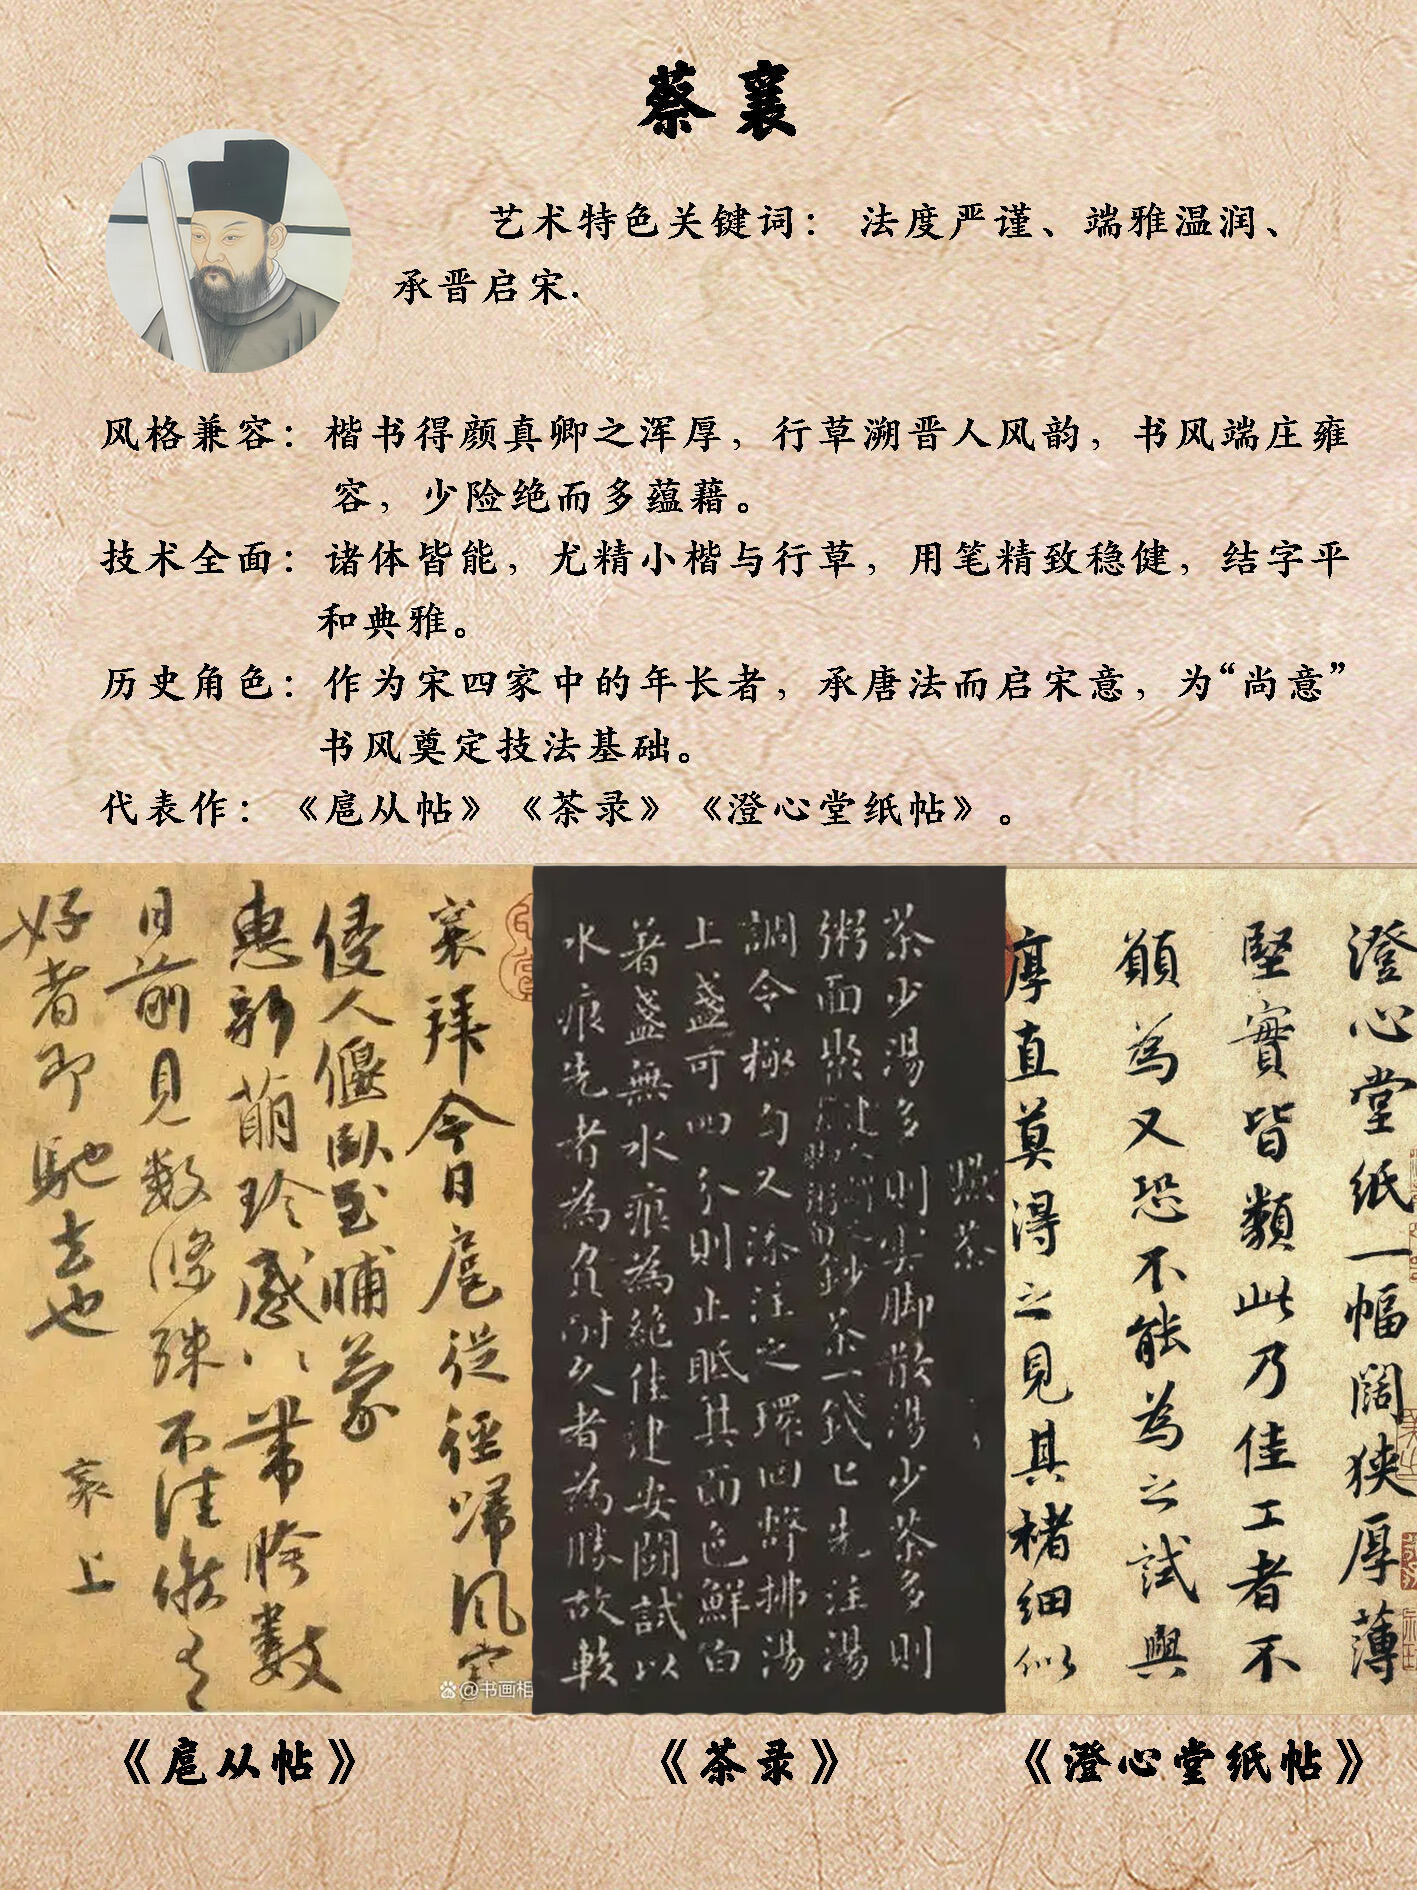 蔡襄
艺术特色关键词： 法度严谨、端雅温润、
承晋启宋.
风格兼容：楷书得颜真卿之浑厚，行草溯晋人风韵，书风端庄雍
容，少险绝而多蕴藉。
技术全面：诸体皆能，尤精小楷与行草，用笔精致稳健，结字平
和典雅。
历史角色：作为宋四家中的年长者，承唐法而启宋意，为“尚意”
书风奠定技法基础。
代表作：《扈从帖》《茶录》《澄心堂纸帖》。
襄拜今日扈從徑歸風寒
侵人偃臥至晡蒙
惠新萠珍感〻帶胯數
日前見數條殊不佳候有
好者即馳去也
襄上
@书画相
點茶
茶少湯多則雲脚散湯少茶多則
粥面聚
鈔茶一錢匕先注湯
調令極勻又添注之環回擊拂湯
上盞可四分則止眡其面色鮮白
著盞無水痕為絕佳建安鬪試以
水痕先者為負耐久者為勝故較
澄心堂紙一幅闊狹厚薄
堅實皆類此乃佳工者不
願為又恐不能為之試與
厚直莫得之見其楮細似
《扈从帖》
《茶录》
《澄心堂纸帖》